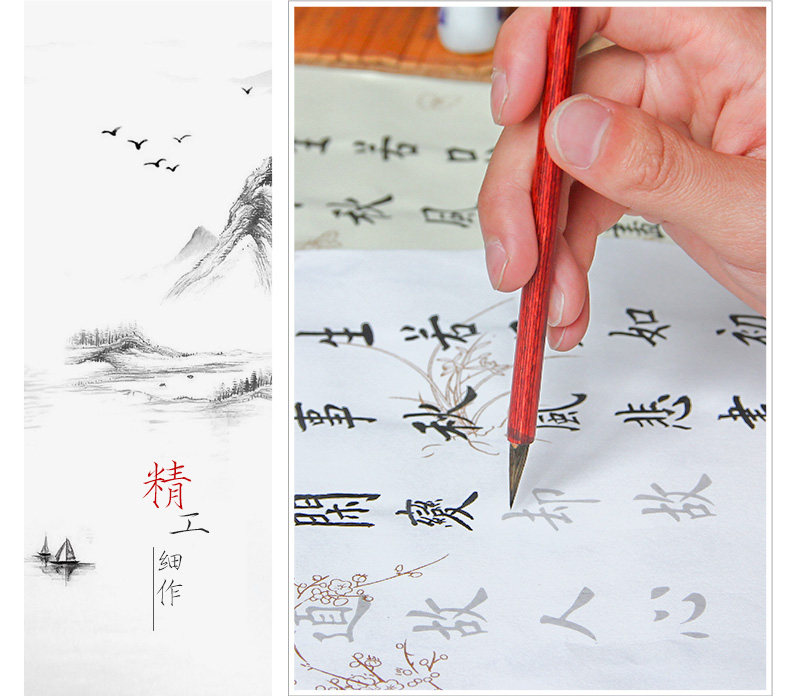 精
工
细作
生若
秋風
生若如初
事秋風悲
閑變却故
道故人心